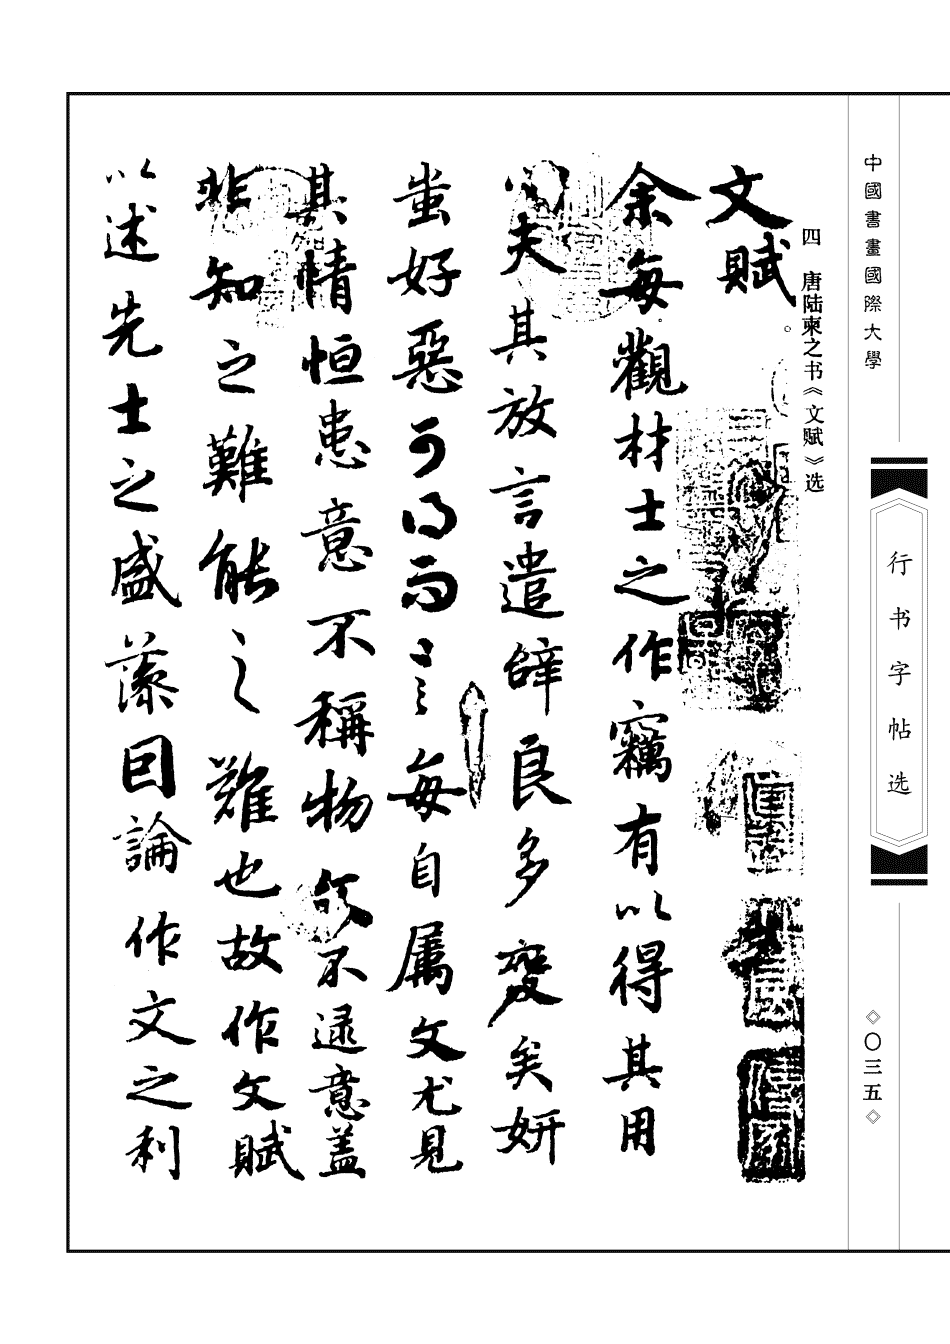 中國書畫國際大學
行书字帖选
◇〇三五◇
四 唐陆柬之书《文赋》选
文賦
余每觀材士之作竊有以得其用
心夫其放言遣辭良多變矣妍
蚩好惡可得而言每自属文尤見
其情恒患意不稱物文不逮意盖
非知之難能之難也故作文賦
以述先士之盛藻因論作文之利